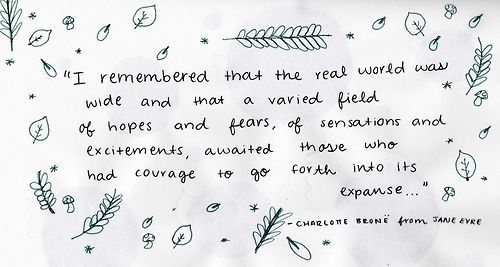 "I remembered that the real world was
wide and that a varied field
of hopes and fears, of sensations and
excitements, awaited those who
had courage to go forth into its
expanse..."
- CHARLOTTE BRONË from JANE EYRE